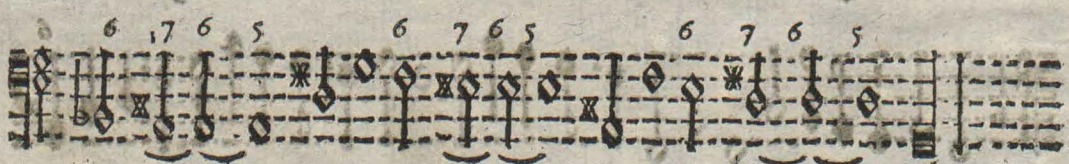 6 7 6 5 6 7 6 5 6 7 6 5